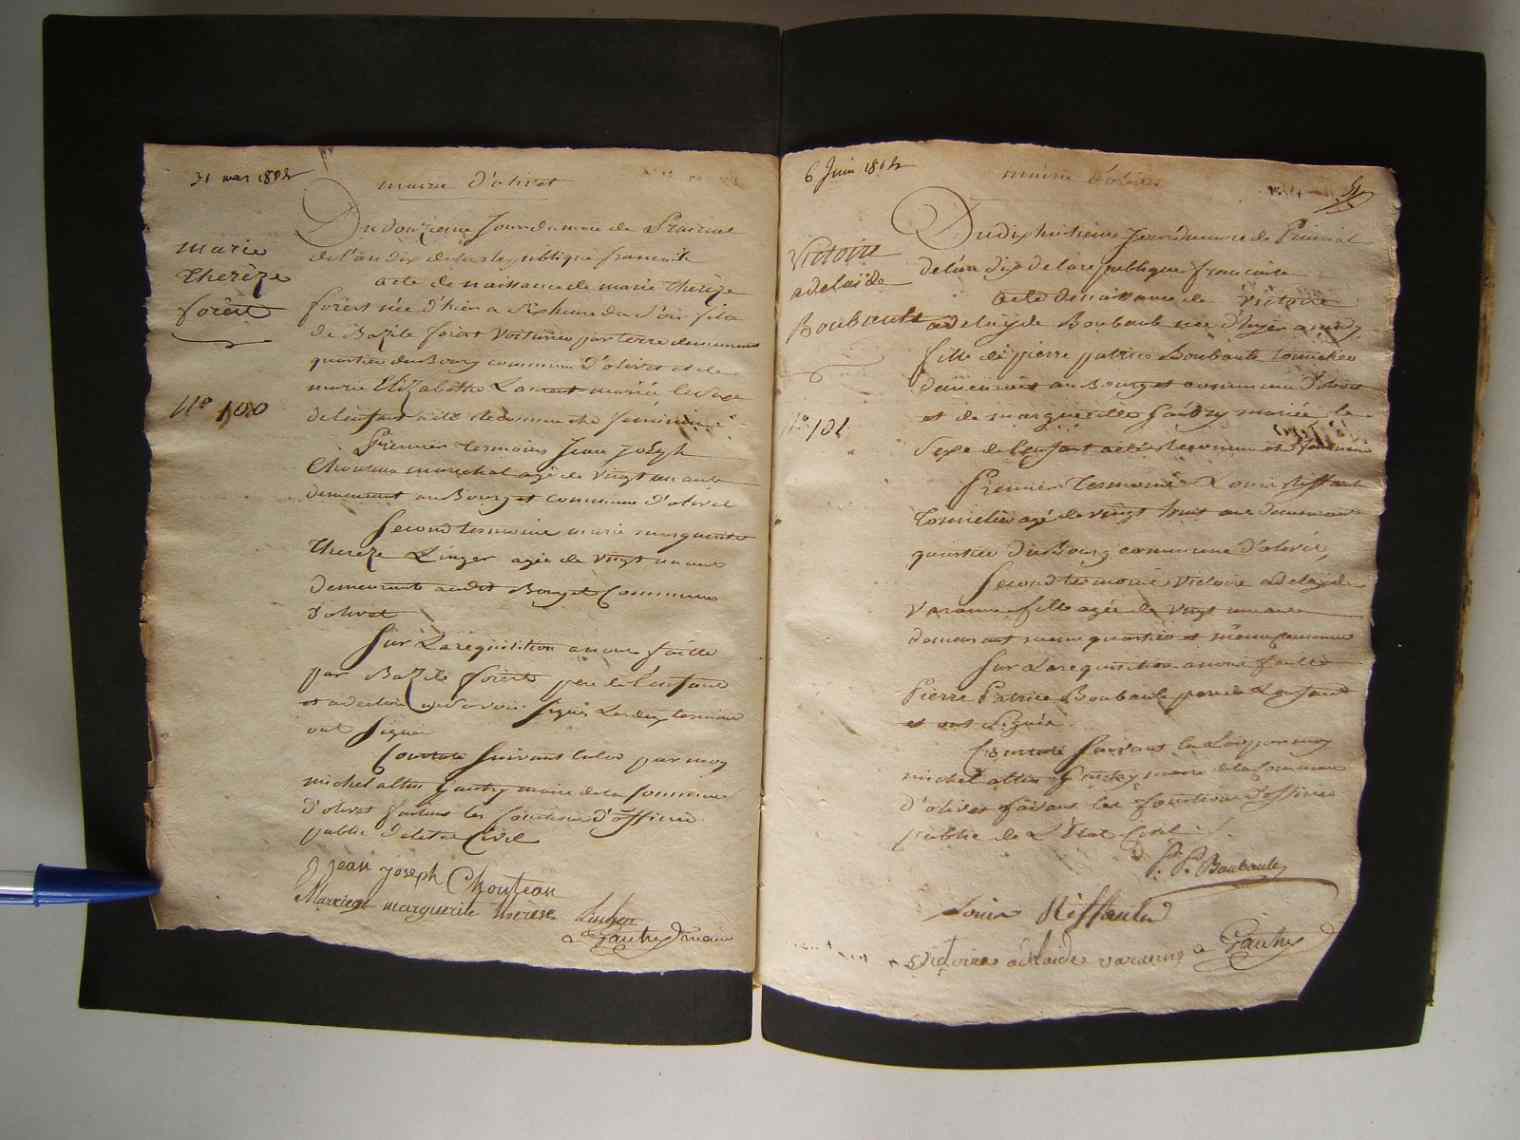 31 mai 1802
mairie d'olivet
marie
thereze
forêst
N° 100
Du douzieme jour du mois de Prairial
de l'an dix de la republique francaise
acte de naissance de marie thereze
forêst née d'hier a six heures du Soir fille
de Bazile forêst Voiturier par terre demeurant
quartier du Bourg commune d'olivet et de
marie Elizabethe Laurent mariée le Sexe
de lenfant a été reconnu etre feminin
Premier temoins Jean joseph
Chouteau marechal agé de vingt un ans
demeurant au Bourg et commune d'olivet
Second temoins marie marguerite
thereze Linger agée de vingt un ans
demeurante audit Bourg et Commune
d'olivet
Sur La requisition a nous faitte
par Bazile forêst pere de L'enfant
et a declaré ne Savoir Signer Les deux temoins
ont Signé
Constaté Suivant la loi par moy
michel altin Gautry maire de la Commune
d'olivet faisant les fonctions d'officier
public de letat Civil
Jean joseph Chouteau
marguerite thérèse
Gautry maire
6 Juin 1802
mairie d'olivet
Victoire
adelaïde
Boubault
N° 101
Du dix huitieme jour du mois de Prairial
de l'an dix de la republique francaise
acte de naissance de Victoire
adelayde Boubault née d'hyer a midy
fille de pierre patrice Boubault tonnelier
demeurant au Bourg et commune d'olivet
et de margueritte Gautry mariée le
Sexe de l'enfant a été reconnu etre feminin
Premier temoins Louis Riffault
tonnelier agé de vingt huit ans demeurant
quartier du Bourg commune d'olivet
Second temoins Victoire adelayde
Varanne fille agée de vingt un ans
demeurant meme quartier et même commune
Sur La requisition a nous faitte
Pierre Patrice Boubault pere de Lenfant
et ont Signés
Constaté Suivant la Loi par moy
michel altin Gautry maire de la Commune
d'olivet faisant les fonctions d'officier
public de L'Etat Civil
P. P. Boubault
Louis Riffault
Victoire adelaide varanne Gautry